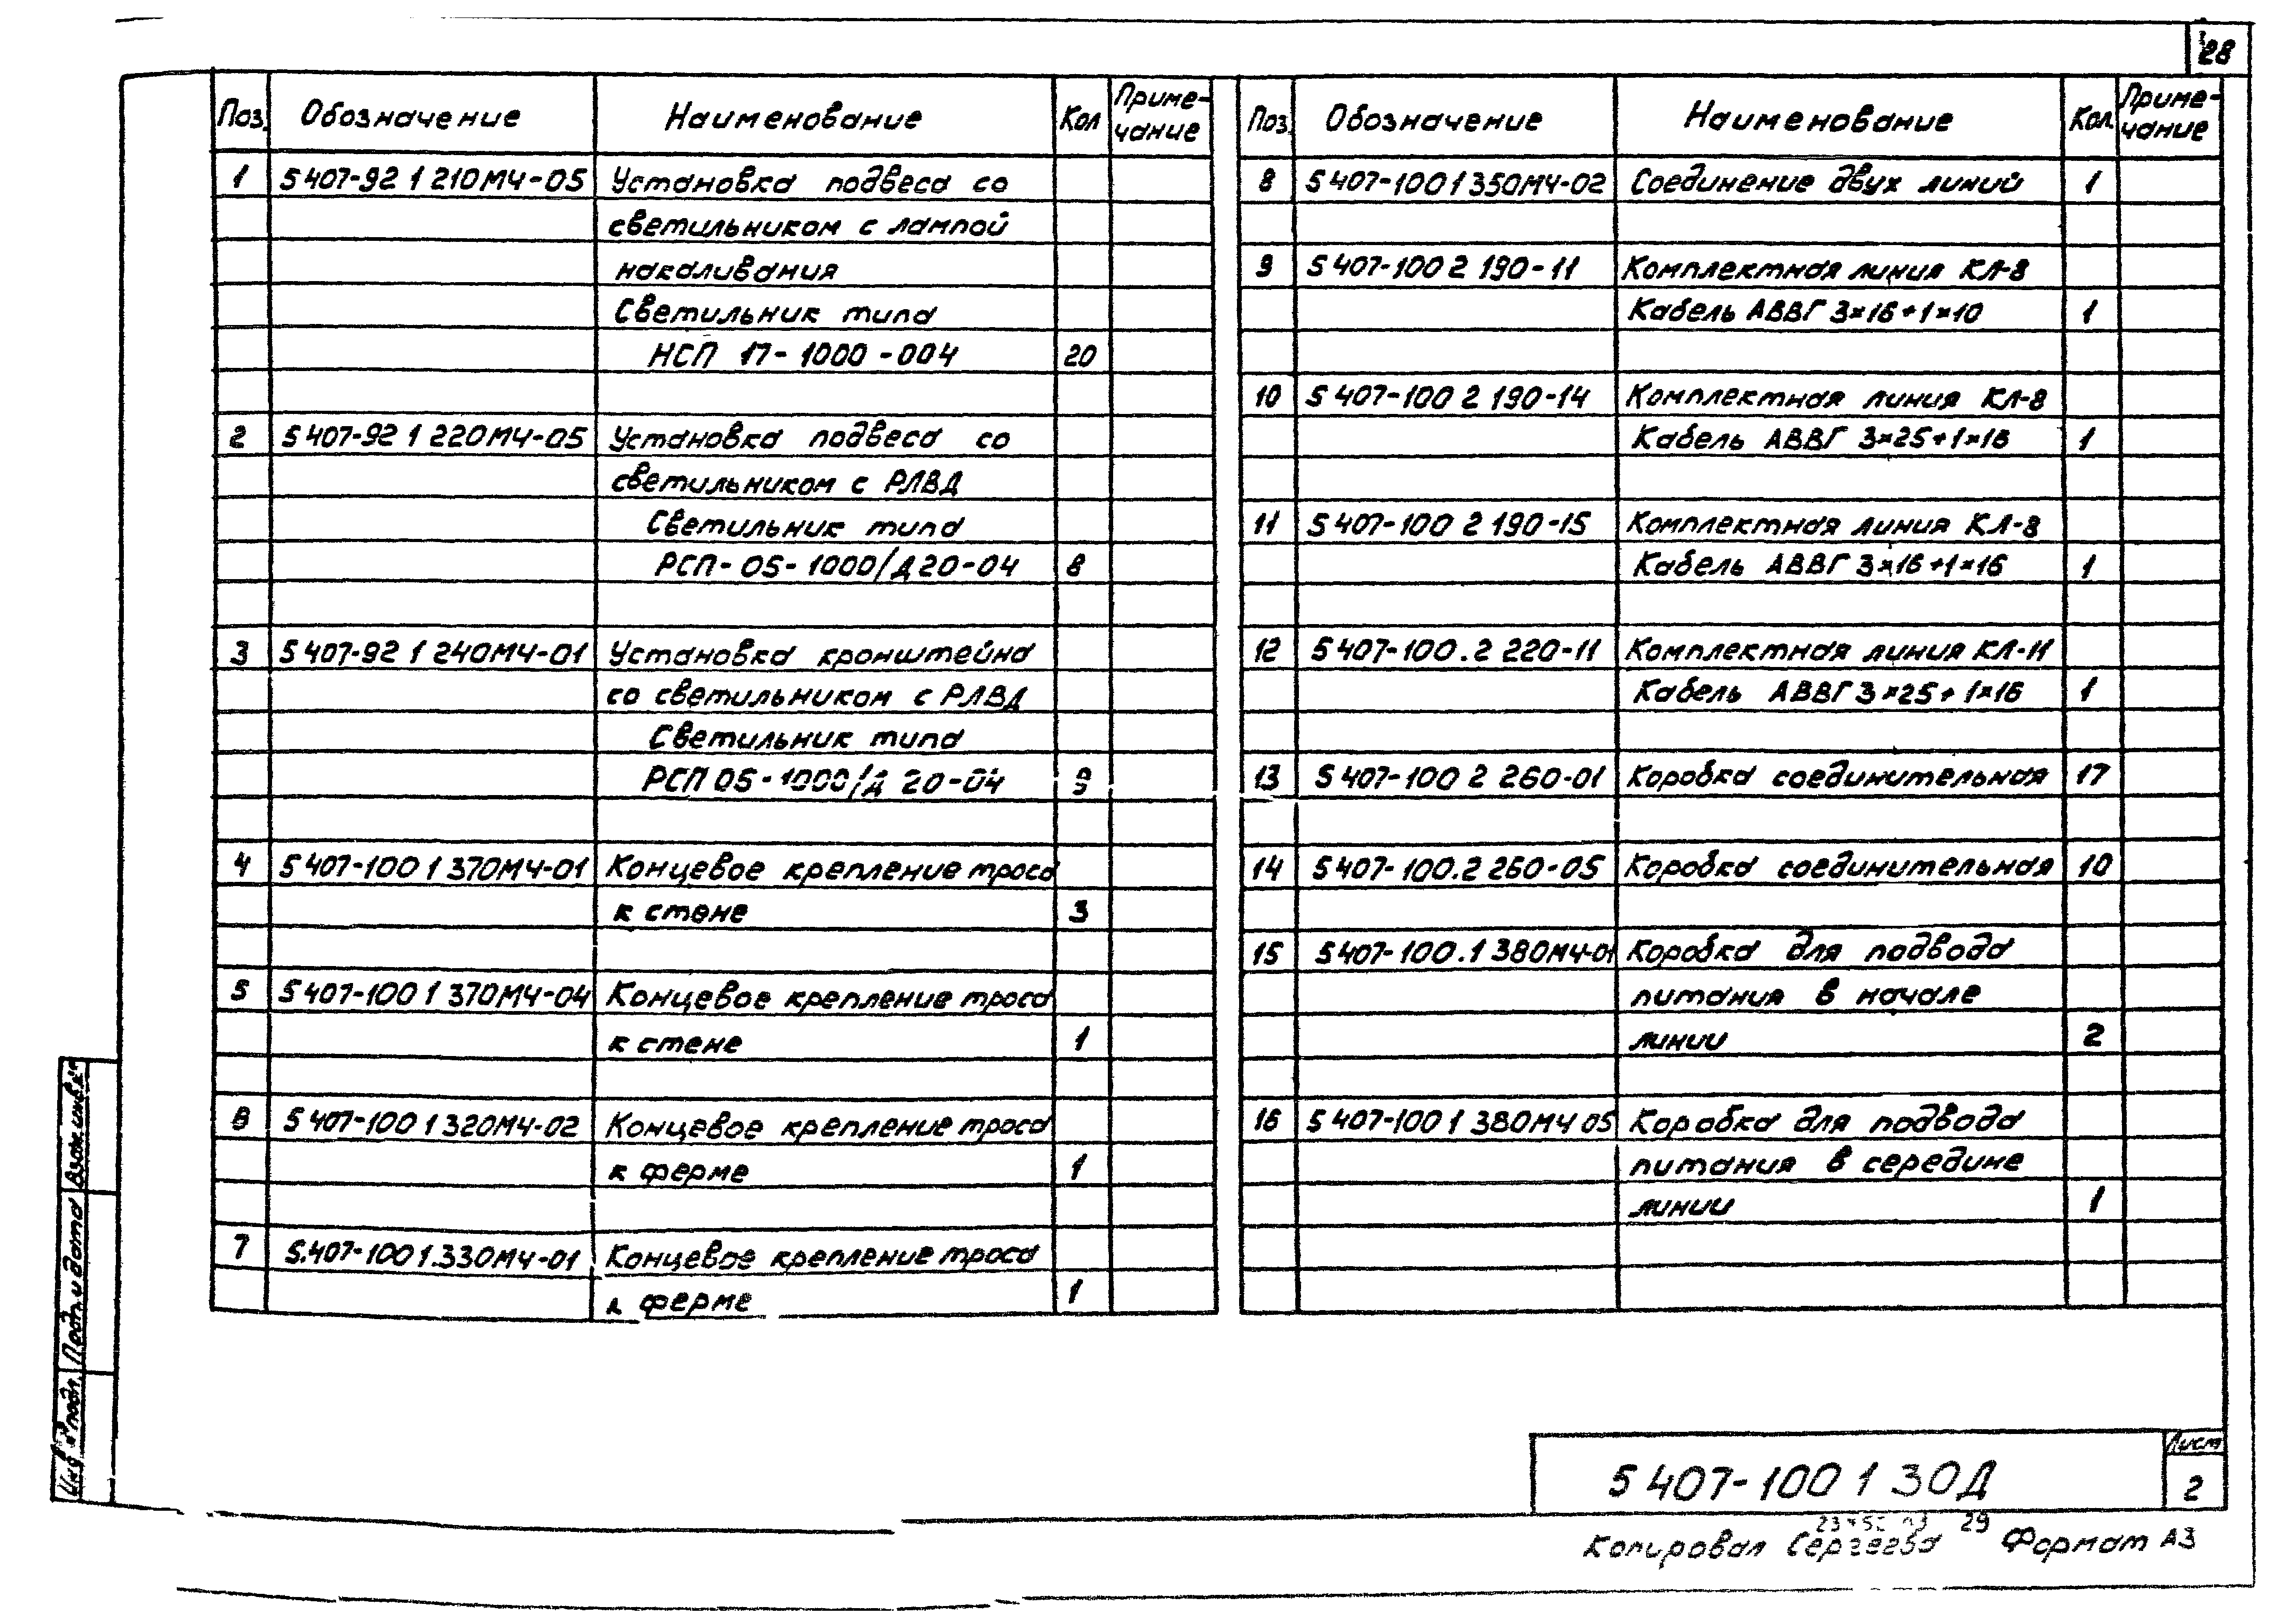 28
Поз. Обозначение Наименование Кол Приме-
чание
1 5 407-92 1 210МЧ-05 Установка подвеса со
светильником с лампой
накаливания
Светильник типа
НСП 17-1000-004 20
2 5 407-92 1 220МЧ-05 Установка подвеса со
светильником с РЛВД
Светильник типа
РСП-05-1000/Д20-04 8
3 5 407-92 1 240МЧ-01 Установка кронштейна
со светильником с РЛВД
Светильник типа
РСП 05-1000/Д 20-04 9
4 5 407-100 1 370МЧ-01 Концевое крепление троса
к стене 3
5 5 407-100 1 370МЧ-04 Концевое крепление троса
к стене 1
6 5 407-100 1 320МЧ-02 Концевое крепление троса
к ферме 1
7 5.407-100 1.330МЧ-01 Концевое крепление троса
к ферме 1
Поз. Обозначение Наименование Кол. Приме-
чание
8 5 407-100 1 350МЧ-02 Соединение двух линий 1
9 5 407-100 2 190-11 Комплектная линия КЛ-8
Кабель АВВГ 3×16+1×10 1
10 5 407-100 2 190-14 Комплектная линия КЛ-8
Кабель АВВГ 3×25+1×16 1
11 5 407-100 2 190-15 Комплектная линия КЛ-8
Кабель АВВГ 3×16+1×16 1
12 5 407-100.2 220-11 Комплектная линия КЛ-11
Кабель АВВГ 3×25+1×16 1
13 5 407-100 2 260-01 Коробка соединительная 17
14 5 407-100.2 260-05 Коробка соединительная 10
15 5 407-100.1 380МЧ-01 Коробка для подвода
питания в начале
линии 2
16 5 407-100 1 380МЧ 05 Коробка для подвода
питания в середине
линии 1
Инв № подл. Подп. и дата Взам. инв. №
5 407-100 1 30Д
Лист
2
29
Копировал Сергеева Формат А3